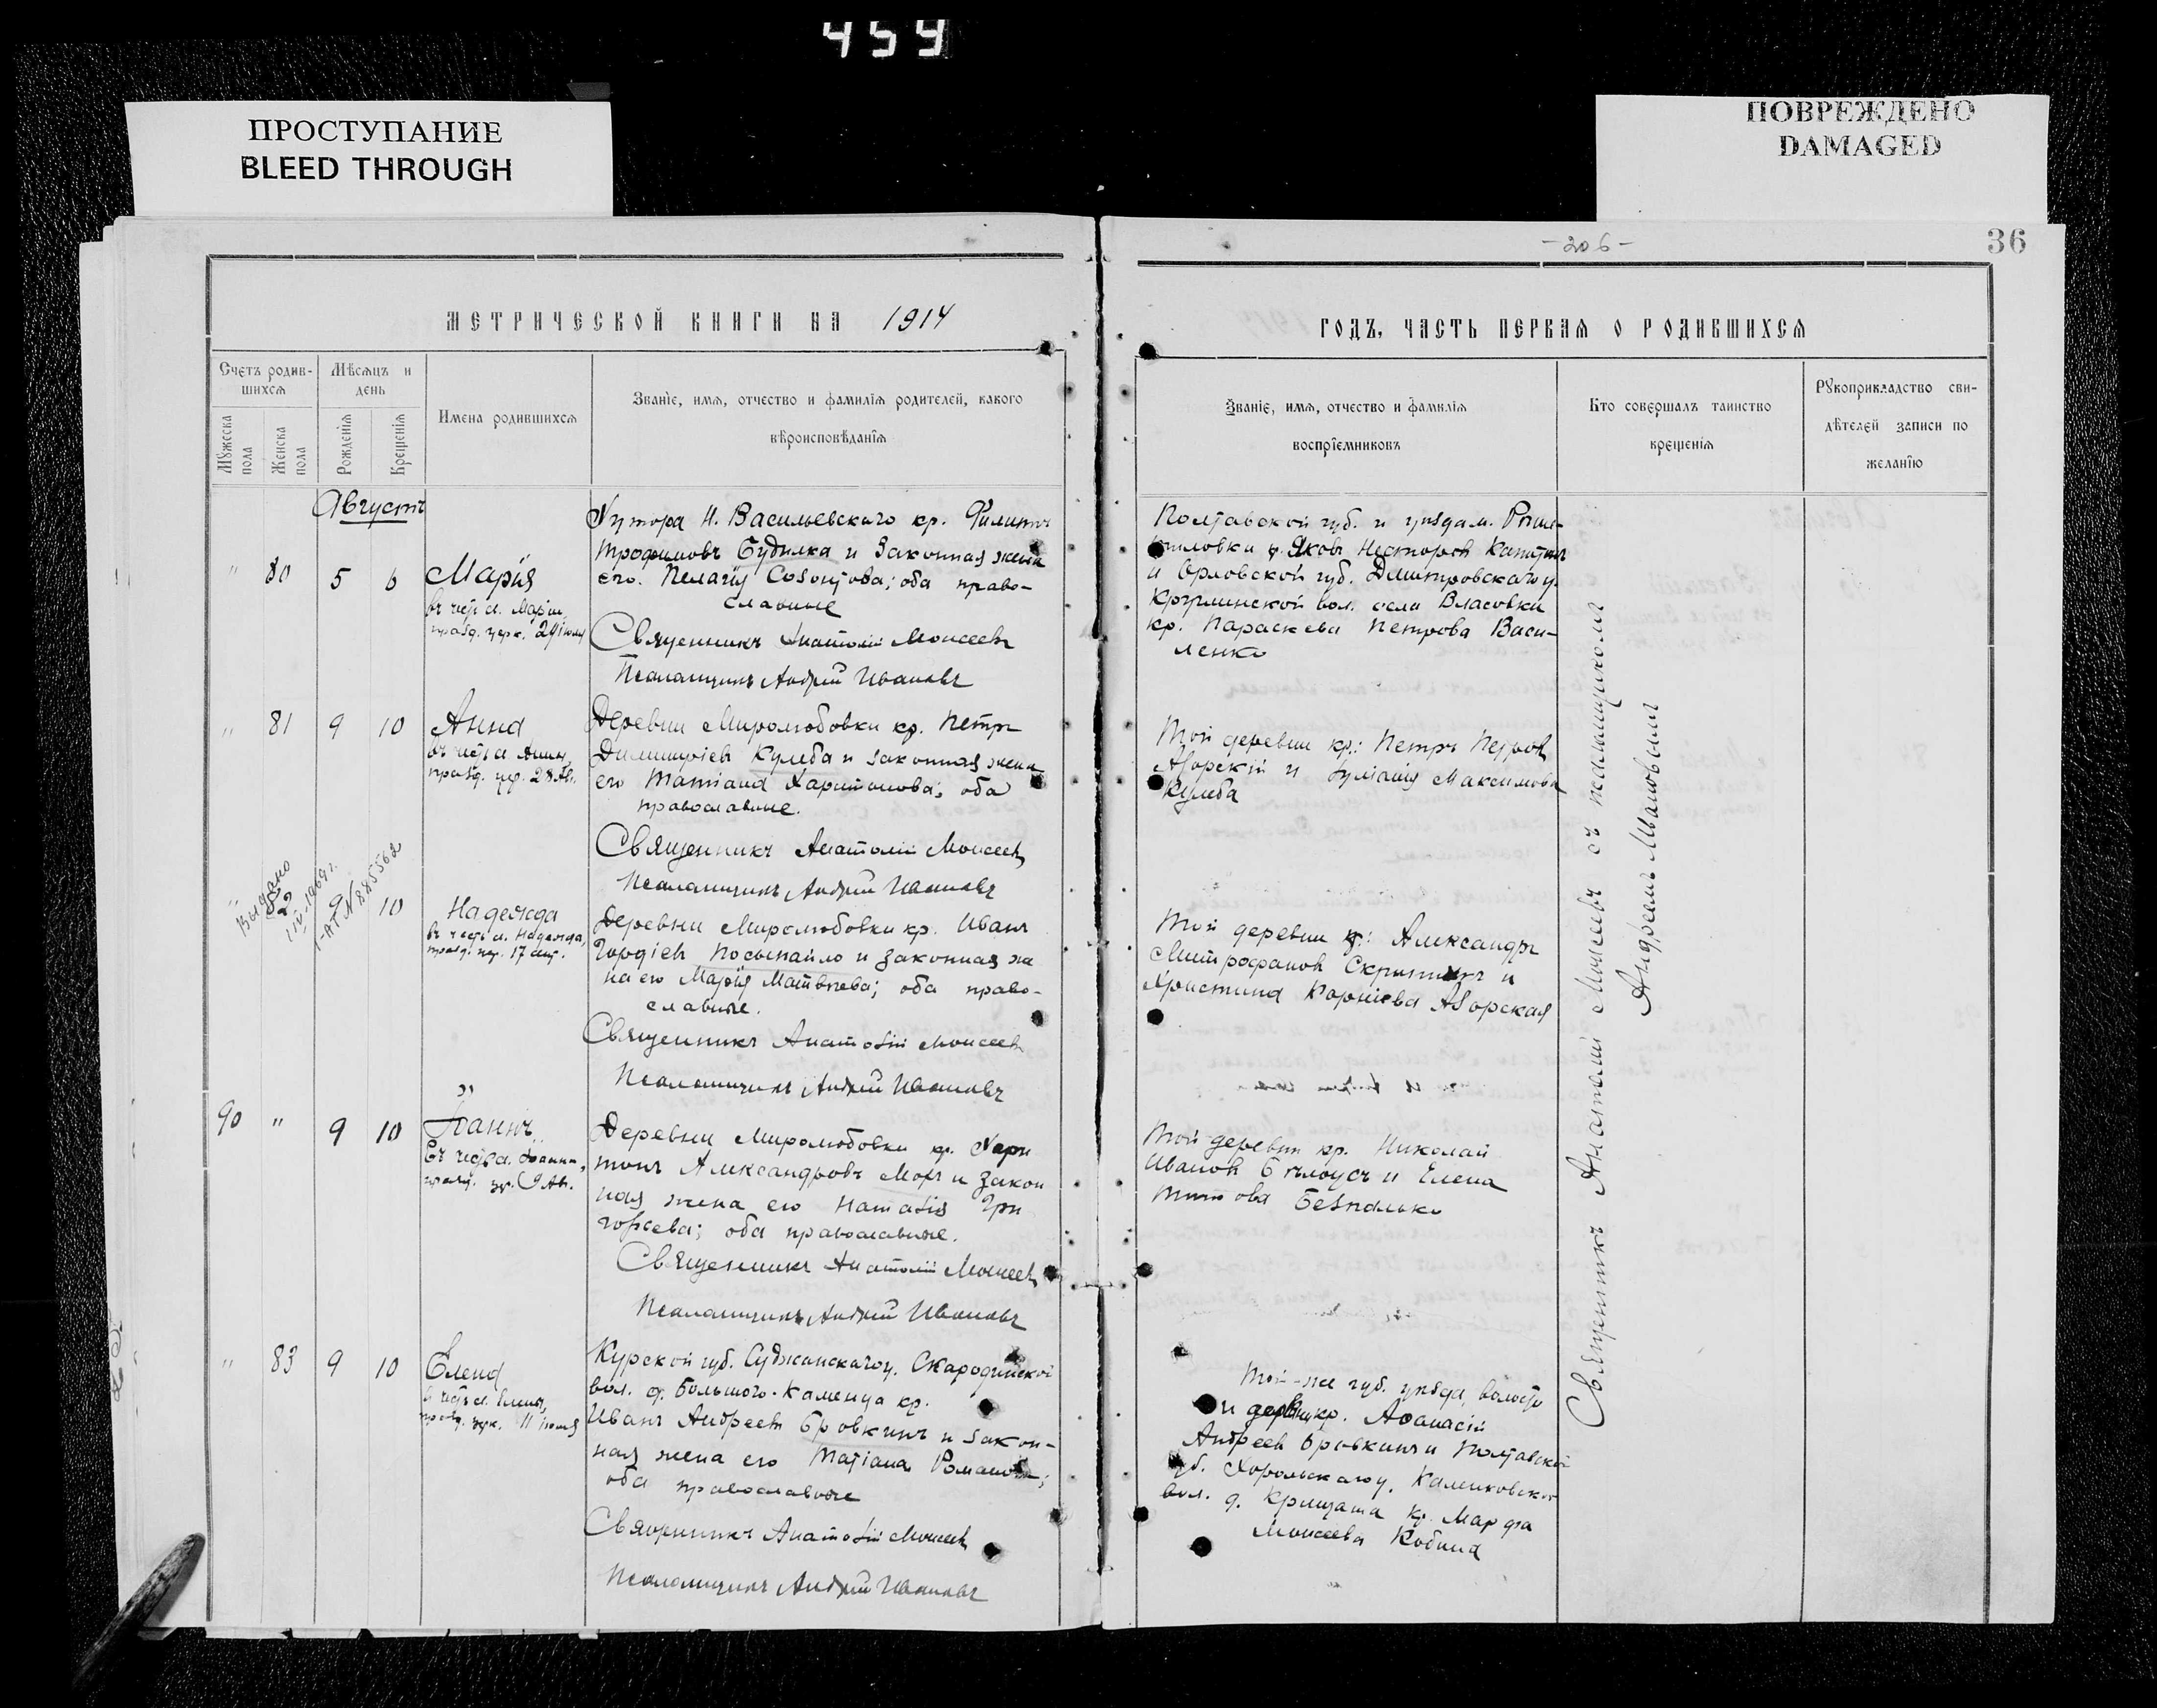 459
ПРОСТУПАНИЕ
BLEED THROUGH
ПОВРЕЖДЕНО
DAMAGED
МЕТРИЧЕСКОЙ КНИГИ НА 1914
Счетъ родив-
шихся
Мѣсяцъ и
день
Мужеска
пола
Женска
пола
Рожденія
Крещенія
Имена родившихся
Званіе, имя, отчество и фамилія родителей, какого
вѣроисповѣданія
Августъ
" 80 5 6
Марія
въ честь св. Маріи,
празд. церк. 29 іюля
Хутора Н. Васильевскаго кр. Филиппъ
Трофимовъ Будилка и законная жена
его Пелагія Созонтова; оба право-
славные
Священникъ Анатолій Моисеевъ
Псаломщикъ Андрей Ивановъ
" 81 9 10
Анна
въ честь св. Анны,
празд. цер. 28 Ав.
Деревни Миролюбовки кр. Петръ
Димитріевъ Кулеба и законная жена
его Татіана Харитонова; оба
православные.
Священникъ Анатолій Моисеевъ
Псаломщикъ Андрей Ивановъ
Выдано
IV-1969 г.
I-АТ № 885562
" 82 9 10
Надежда
въ честь св. Надежды,
празд. цер. 17 сент.
Деревни Миролюбовки кр. Иванъ
Гордіевъ Посыпайло и законная же
на его Марія Матвѣева; оба право-
славные.
Священникъ Анатолій Моисеевъ
Псаломщикъ Андрей Ивановъ
90 " 9 10
Іоаннъ
въ честь св. Іоанна,
празд. цр. 9 Ав.
Деревни Миролюбовки кр. Хари
тонъ Александровъ Моръ и закон
ная жена его Наталія Гри
горьева; оба православные.
Священникъ Анатолій Моисеевъ
Псаломщикъ Андрей Ивановъ
" 83 9 10
Елена
въ честь св. Елены,
празд. церк. 11 іюля
Курской губ. Суджанскаго у. Скародинской
вол. д. Большого-Каменца кр.
Иванъ Андреевъ Бровкинъ и закон-
ная жена его Татіана Романова;
оба православные
Священникъ Анатолій Моисеевъ
Псаломщикъ Андрей Ивановъ
-206-
36
ГОДЪ, ЧАСТЬ ПЕРВАЯ О РОДИВШИХСЯ
Званіе, имя, отчество и фамилія
воспріемниковъ
Кто совершалъ таинство
крещенія
Рукоприкладство сви-
дѣтелей записи по
желанію
Полтавской губ. и уѣзда м.
кр. Яковъ Несторовъ
и Орловской губ. Димитровскаго у.
вол. села Власовки
кр. Параскева Петрова Васи-
ленко
Той деревни кр.: Петръ Петровъ
Азорскій и Іуліанія Максимова
Кулеба
Той деревни кр.: Александръ
Митрофановъ Скрипникъ и
Христина Корніева Азорская
Той деревни кр. Николай
Ивановъ Бѣлоусъ и Елена
Титова Безпалько
Той-же губ. уѣзда, волости
и деревни кр. Аѳанасій
Андреевъ Бровкинъ и Полтавской
губ. Хорольскаго у. Калениковской
вол. д. Крищата кр. Марфа
Моисеева Кобина
Священникъ Анатолій Моисеевъ съ псаломщикомъ
Андреемъ Ивановымъ